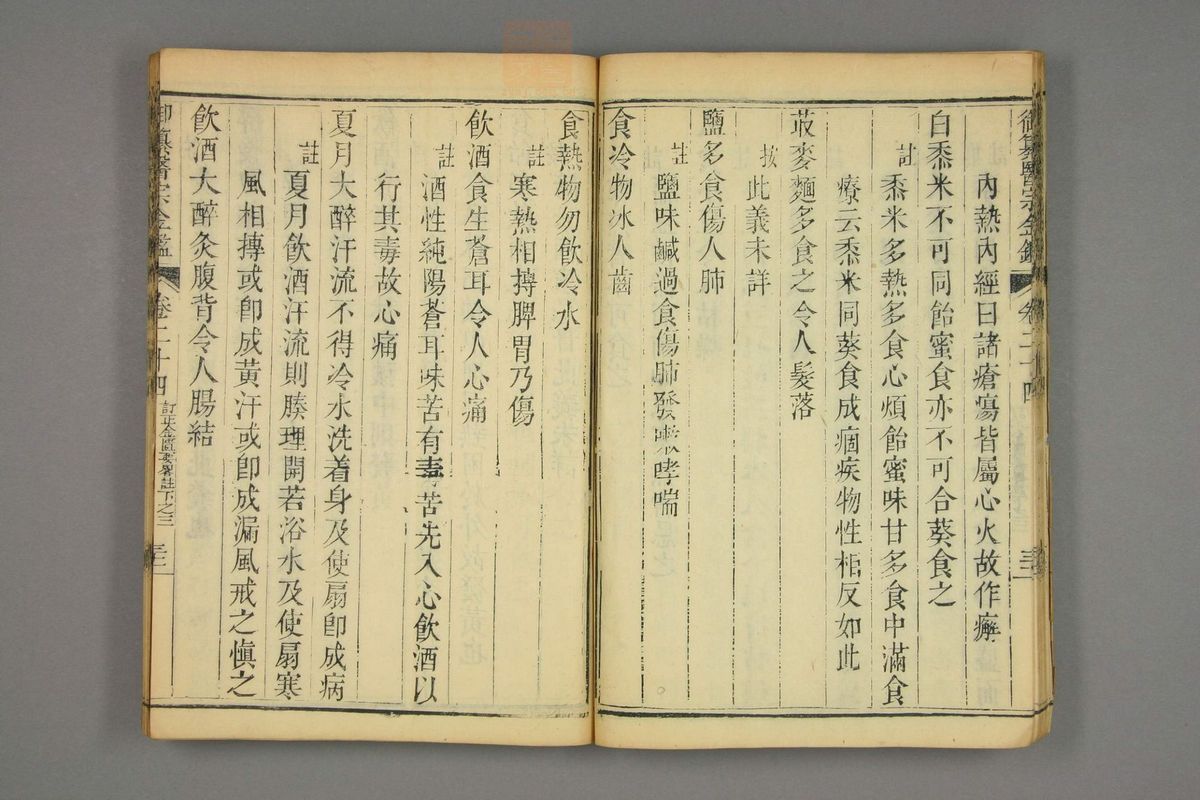 御纂醫宗金鑑
卷二十四
內熱內經曰諸瘡瘍皆屬心火故作癬
白黍米不可同飴蜜食亦不可合葵食之
註
黍米多熱多食心煩飴蜜味甘多食中滿食
療云黍米同葵食成痼疾物性相反如此
荍麥麵多食之令人髮落
按
此義未詳
鹽多食傷人肺
註
鹽味鹹過食傷肺發嗽哮喘
食冷物冰人齒
食熱物勿飲冷水
註
寒熱相摶脾胃乃傷
飲酒食生蒼耳令人心痛
註
酒性純陽蒼耳味苦有毒苦先入心飲酒以
行其毒故心痛
夏月大醉汗流不得冷水洗着身及使扇卽成病
註
夏月飲酒汗流則腠理開若浴水及使扇寒
風相摶或卽成黃汗或卽成漏風戒之慎之
飲酒大醉灸腹背令人腸結
御纂醫宗金鑑
卷二十四
訂正金匱要畧註下之三